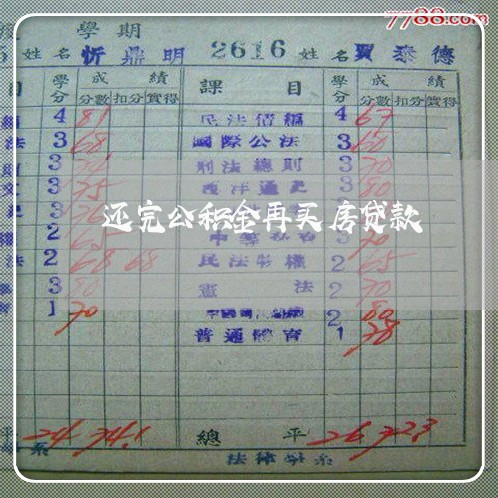 7788.com
學期
姓名 忻鼎明 2616 姓名 賈泰德
目 學分 成績 課目 學分 成績
分數 扣分 實得 分數 扣分 實得
4 81 民法債編 4 67
法 3 68 國際公法 3 60
3 刑法總則 3 70
3 75 西洋通史 3 80
3
还完公积金再买房贷款
2 65 3 70
法 2 68 68 民法物權 2 65
3 80 憲法 2 70
1 70 2 80
普通體育 1 78
平 24 74.1 總平 26 72.3
系 法律學系